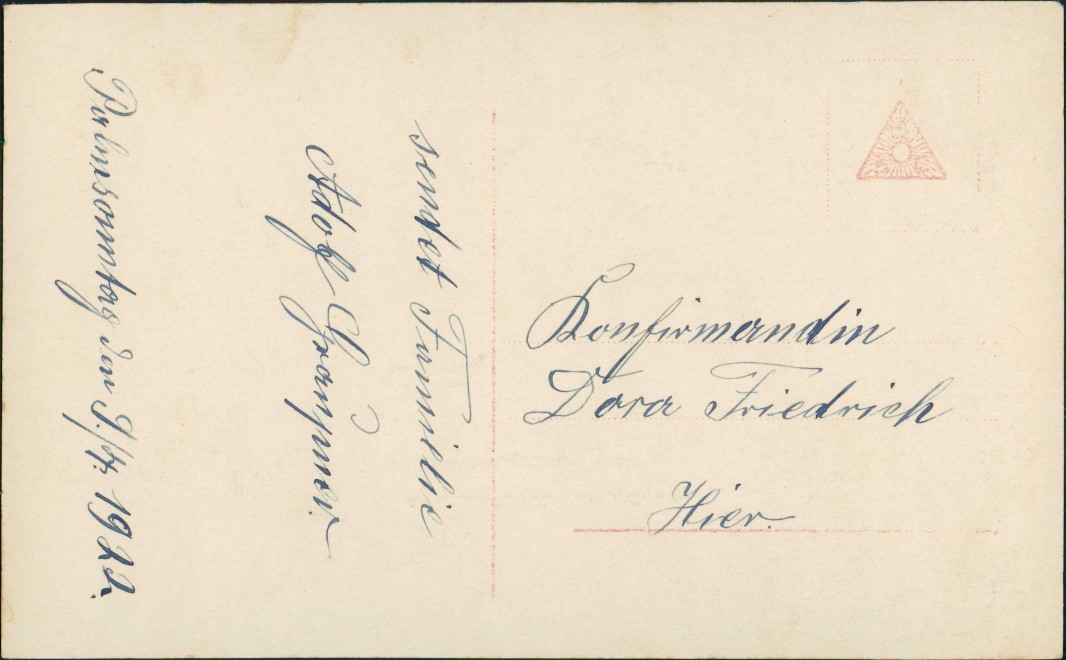 sendet Familie
Adolf Graupner.
Palmsonntag den 9./4. 1922.
Konfirmandin
Dora Friedrich
Hier.